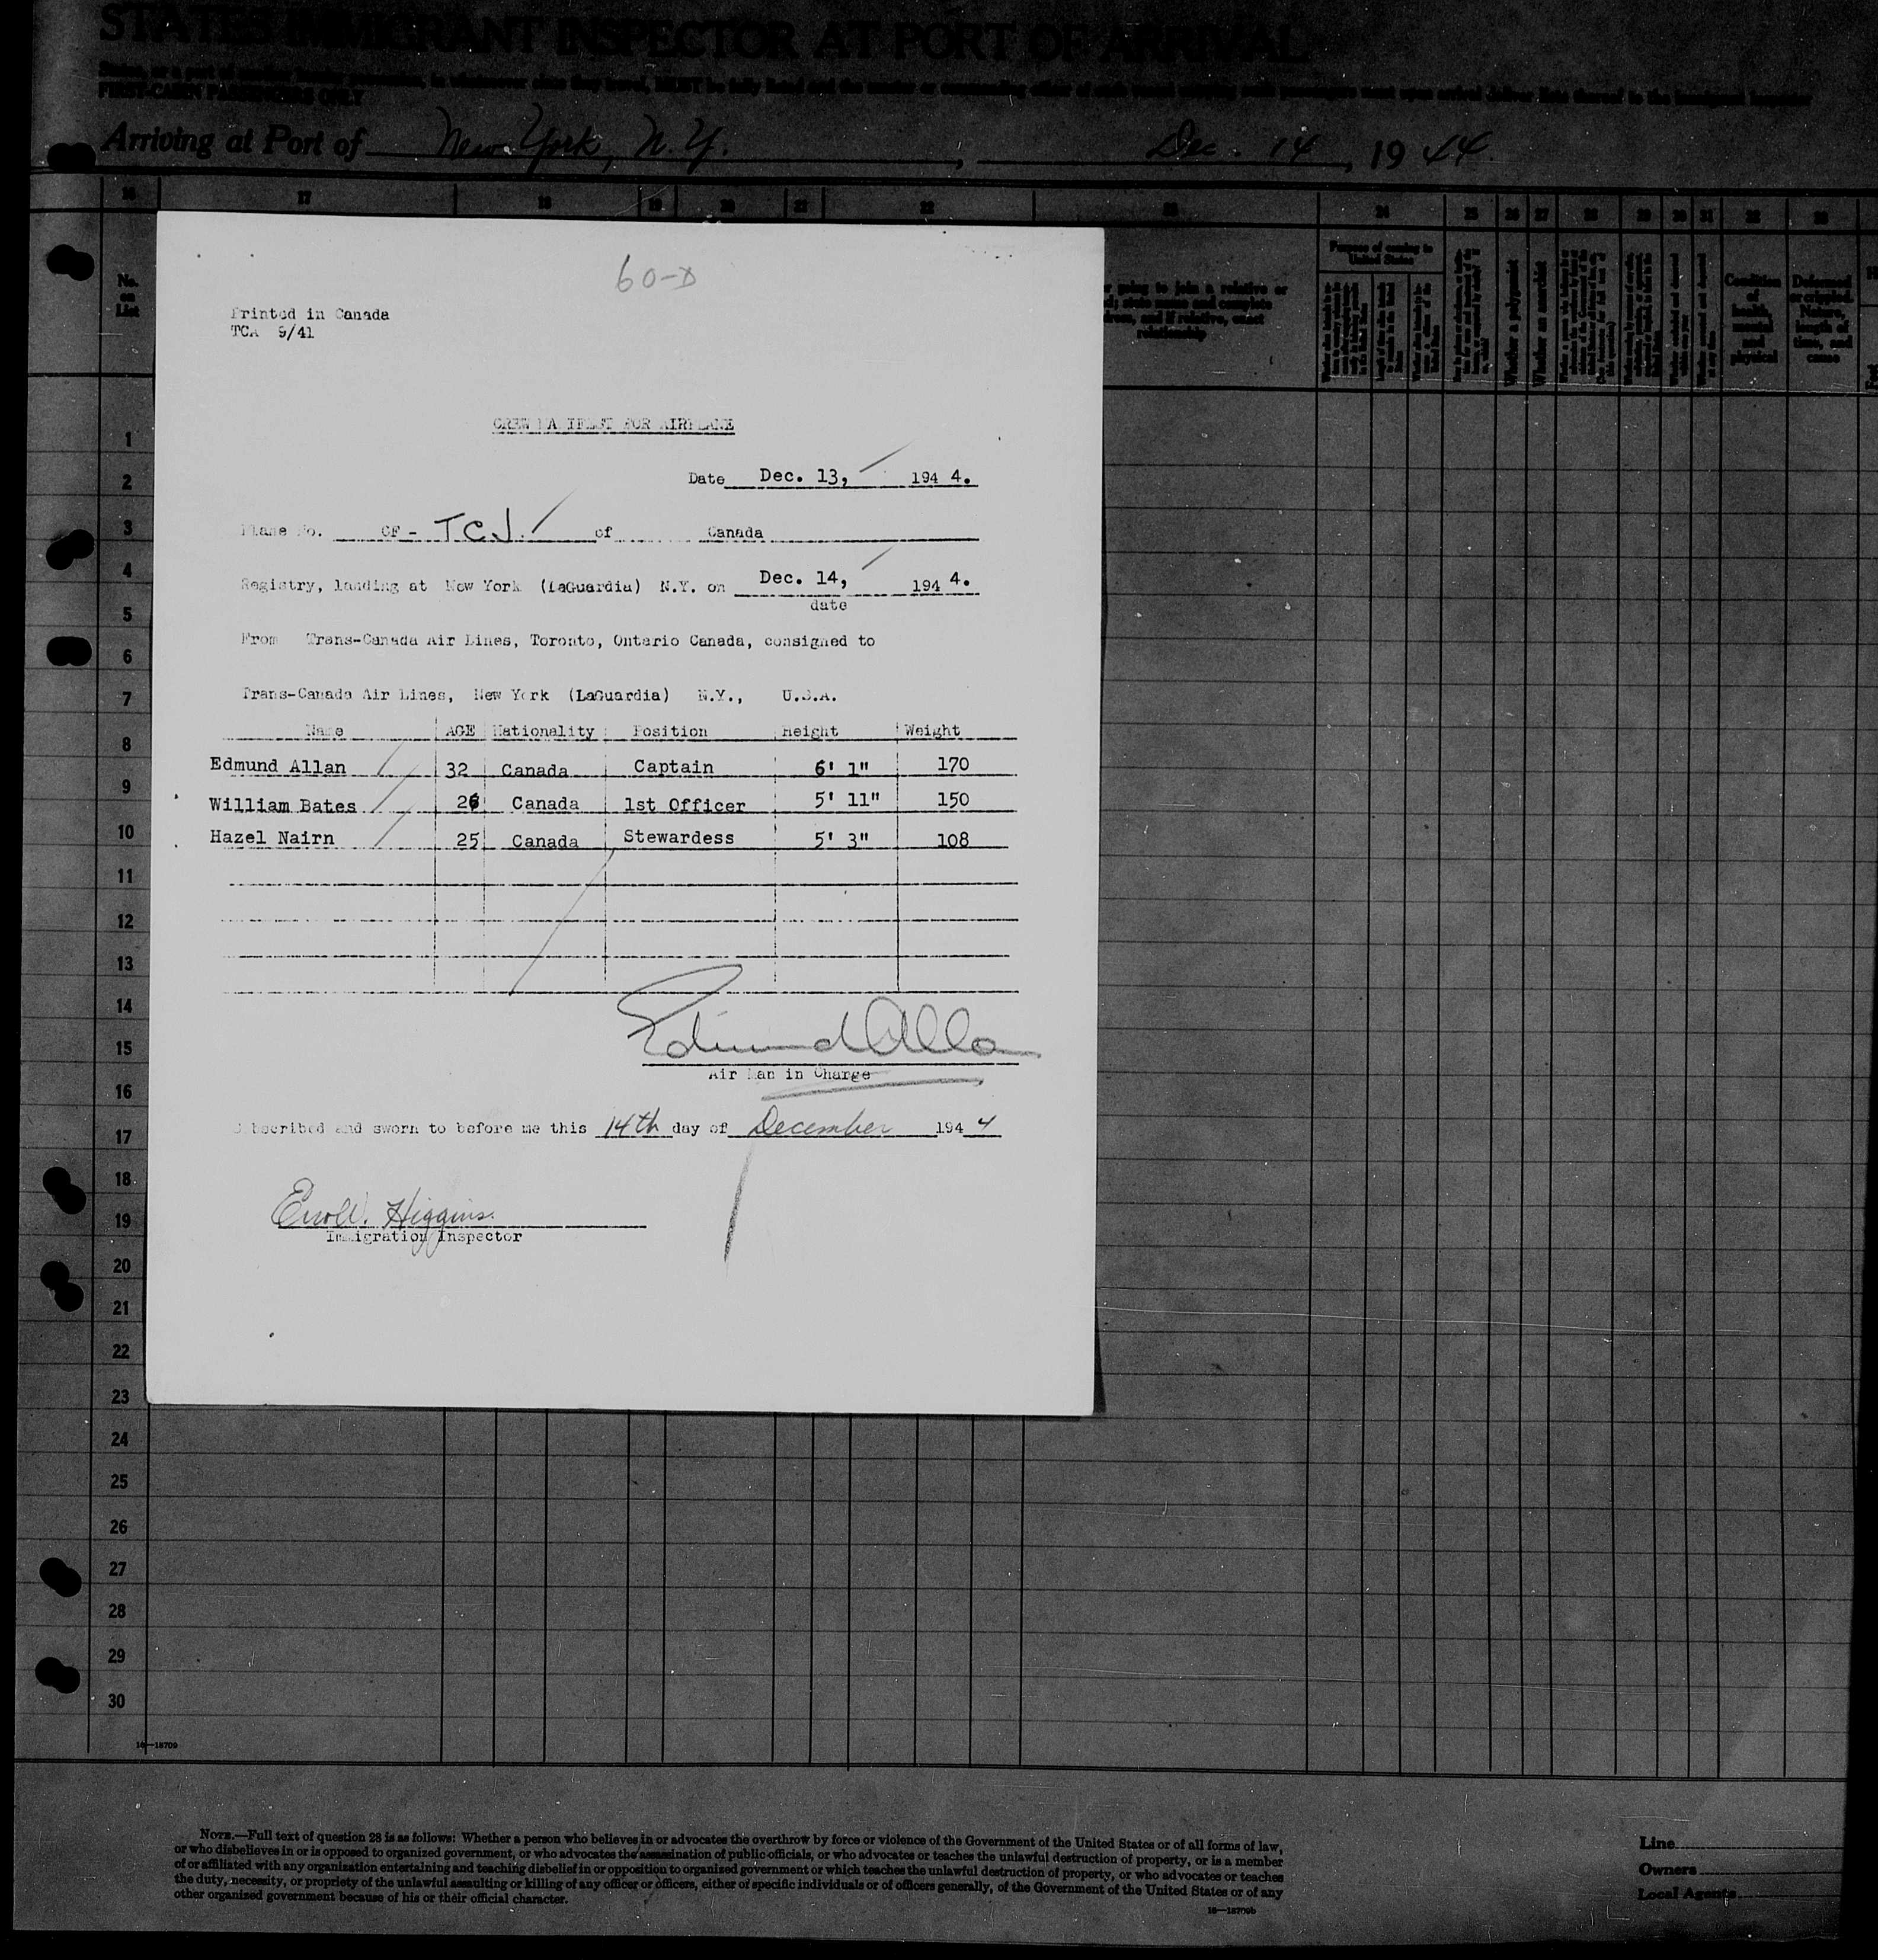 STATES IMMIGRANT INSPECTOR AT PORT OF ARRIVAL
FIRST-CABIN PASSENGERS ONLY
Arriving at Port of New York, N.Y. , Dec. 14 , 19 44.
16 17 18 19 20 21 22 23 24 25 26 27 28 29 30 31 32 33
No. on List
Purpose of coming to United States
Whether a polygamist
Whether an anarchist
60-D
Printed in Canada
TCA 9/41
CREW MANIFEST FOR AIRPLANE
Date Dec. 13, 194 4.
Plane No. CF - TCJ. of Canada
Registry, landing at New York (LaGuardia) N.Y. on Dec. 14, 194 4.
date
From Trans-Canada Air Lines, Toronto, Ontario Canada, consigned to
Trans-Canada Air Lines, New York (LaGuardia) N.Y., U.S.A.
Name AGE Nationality Position Height Weight
Edmund Allan 32 Canada Captain 6' 1" 170
William Bates 26 Canada 1st Officer 5' 11" 150
Hazel Nairn 25 Canada Stewardess 5' 3" 108
Edmund Allan
Air Man in Charge
Subscribed and sworn to before me this 14th day of December 194 4
Higgins.
Immigration Inspector
1
2
3
4
5
6
7
8
9
10
11
12
13
14
15
16
17
18
19
20
21
22
23
24
25
26
27
28
29
30
16—18709
NOTE.—Full text of question 28 is as follows: Whether a person who believes in or advocates the overthrow by force or violence of the Government of the United States or of all forms of law,
or who disbelieves in or is opposed to organized government, or who advocates the assassination of public officials, or who advocates or teaches the unlawful destruction of property, or is a member
of or affiliated with any organization entertaining and teaching disbelief in or opposition to organized government or which teaches the unlawful destruction of property, or who advocates or teaches
the duty, necessity, or propriety of the unlawful assaulting or killing of any officer or officers, either of specific individuals or of officers generally, of the Government of the United States or of any
other organized government because of his or their official character.
16—18709b
Line
Owners
Local Agents